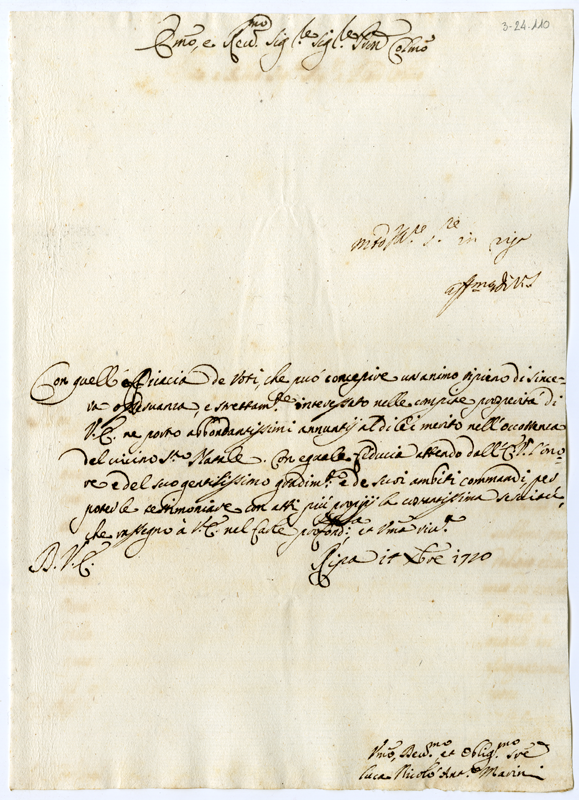 3-24.110
Emo, e Revmo Sigle Sigle Pron Colmo
in
affmo di V.S
Con quell' efficacia de Voti, che può concepire un animo ripieno di since-
ra osservanza e strettamte interessato nelle compite prosperità di
V.E. ne porto abbondantissimi annuntij al di lei merito nell'occorrenza
del vicino Sto Natale. Con eguale fiducia attendo dall'E.V. l'ono-
re e del suo gentilissimo gradimto e de suoi ambiti commandi, per
poterle testimoniare con atti più proprij la
che rassegno à V.E. nel farle profondma et Uma rivza
B. V.E.
Ripa 14 Xbre 1720
Umo, Devmo et Obligmo Sre
Luca Nicolò Anto Marini